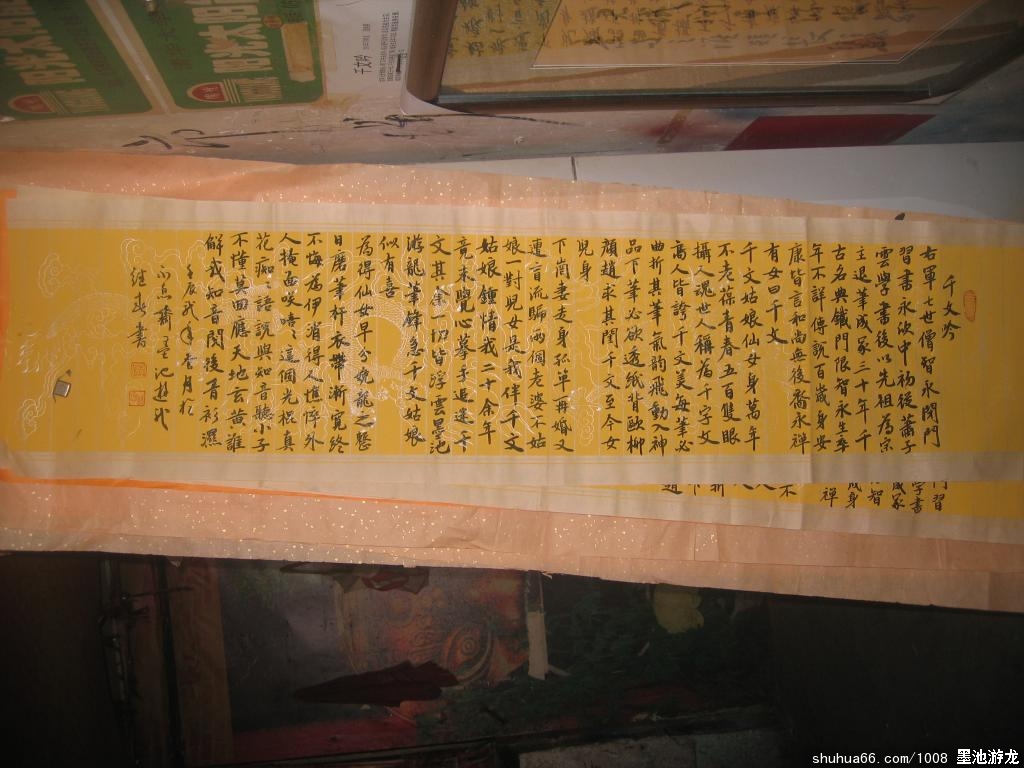 千文吟
右軍七世僧智永閉門
習書永欣中初從蕭子
雲學書書後以先祖為宗
主退筆成冢三十年千
古名典鐵門限智永生卒
年不詳傳說百歲身安
康皆言和尚無後裔永禅
有女曰千文
千文姑娘仙女身萬年
不老葆青春五百隻眼
攝人魂世人稱為千字文
高人皆誇千文美每筆必
曲折其筆氣韵飛動入神
品下筆必欲透紙背歐柳
顏趙求其閏千文至今女
兒身
下崗妻走身孤单再婚又
連盲流騙兩個老婆不如
娘一對兒女是我伴千文
姑娘鍾情我二十余年
竟未覺心摹手追迷千
文其余一切皆浮雲墨池
游龍筆鋒急千文姑娘
似有喜
為得仙女早分娩龍之懸
日磨筆杆衣帶漸寬終
不悔為伊消得人憔悴外
人掩面咲唔這個光棍真
花痴痴語說與知音聽小子
不惜莫回應天地玄黄誰
解我知音閱後看衫濕
壬辰
墨池遊龍
继春書
千文吟
shuhua66.com/1008 墨池游龙